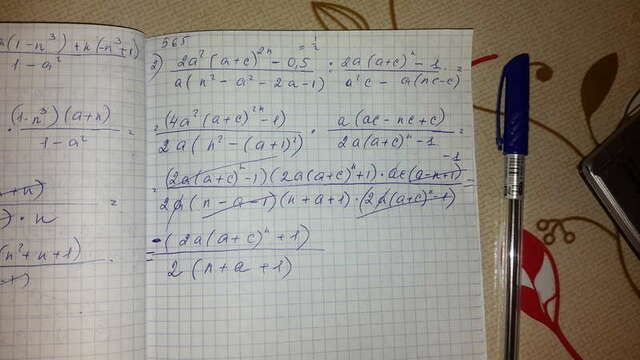 (1-n³)+n(-n³+1)
1-a²
(1-n³)(a+n) =
1-a²
(n²+n+1)
565
= 1/2
2) (2a²(a+c)²ⁿ - 0,5) / (a(n²-a²-2a-1)) : (2a(a+c)ⁿ - 1) / (a²c - a(nc-c)) =
= (4a²(a+c)²ⁿ-1) / (2a(n²-(a+1)²)) · (a(ac-nc+c)) / (2a(a+c)ⁿ-1) =
= ((2a(a+c)ⁿ-1)(2a(a+c)ⁿ+1)·ac(a-n+1)) / (2a(n-a-1)(n+a+1)·(2a(a+c)ⁿ-1)) =
-1
= -(2a(a+c)ⁿ+1) / (2(n+a+1))